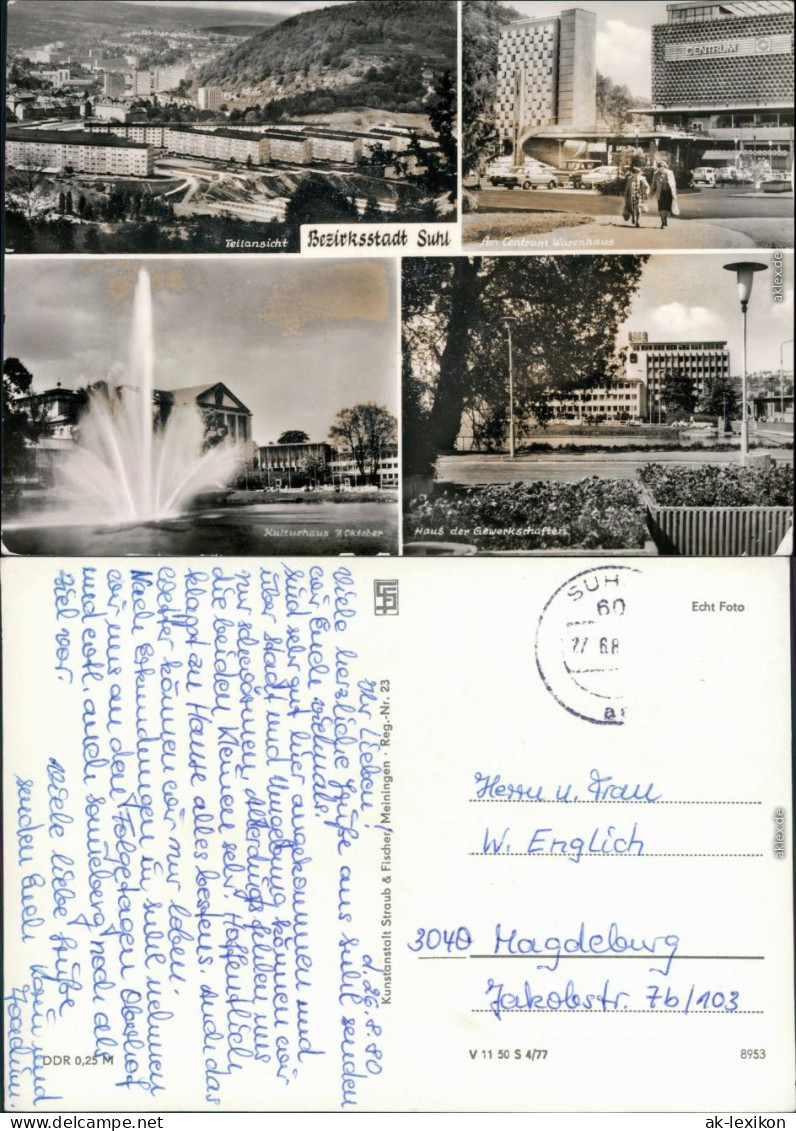 CENTRUM
Teilansicht
Bezirksstadt Suhl
Am Centrum Warenhaus
Kulturhaus 7. Oktober
Haus der Gewerkschaften
aklex.de
d. 26.8.80
Ihr Lieben!
Viele herzliche Grüße aus Suhl senden
wir Euch vielmals.
Sind sehr gut hier angekommen und
über Stadt und Umgebung können wir
nur schwärmen. Allerdings fehlen uns
die beiden Kleinen sehr. Hoffentlich
klappt zu Hause alles bestens. Auch das
Wetter können wir nur loben.
Nach Erkundungen in Suhl nehmen
wir uns an den Folgetagen Oberhof
und evtl. auch Sonneberg noch als
Ziel vor.
Viele liebe Grüße
senden Euch Karin und
Joachim.
Kunstanstalt Straub & Fischer, Meiningen · Reg.-Nr. 23
DDR 0,25 M
SUH
60
Echt Foto
Herrn u. Frau
W. Englich
3040 Magdeburg
Jakobstr. 7b/103
V 11 50 S 4/77
8953
aklex.de
www.ak-lexikon.de
ak-lexikon